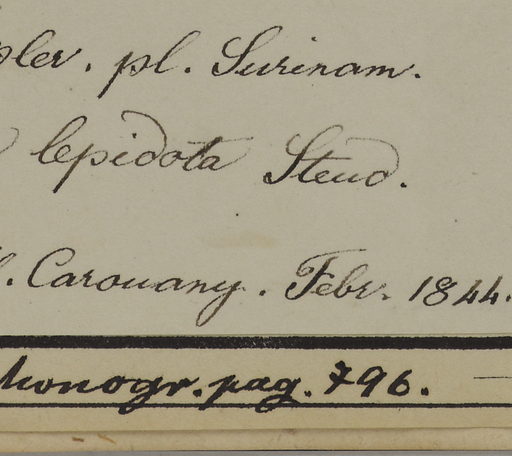 pler. pl. Surinam.
lepidota Steud.
l. Carouany. Febr. 1844.
Monogr. pag. 796. —